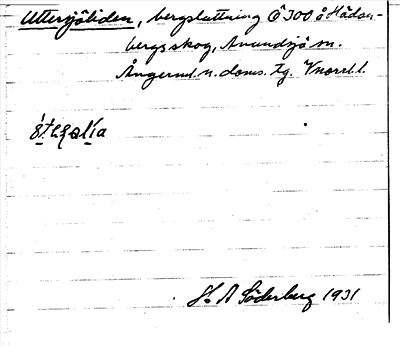 Uttersjöliden, bergsluttning Ö 300 å Hädan-
bergs skog, Anundsjö sn.
Ångerml. n. doms. tg. Vnorrl. l.
H. A. Söderberg 1931